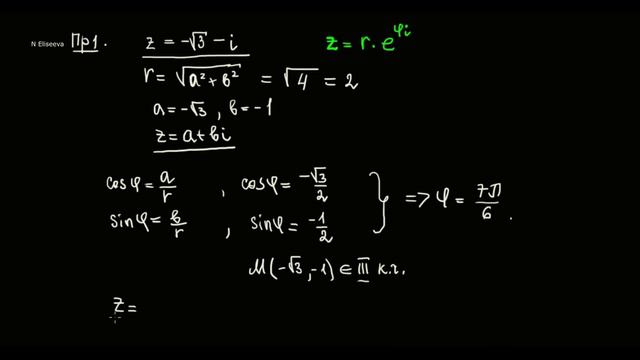 N Eliseeva Пр1. z = -√3 - i z = r · e^{φi}
r = √(a² + b²) = √4 = 2
a = -√3, b = -1
z = a + bi
cos φ = a/r , cos φ = -√3/2
sin φ = b/r , sin φ = -1/2 } => φ = 7π/6 .
M(-√3, -1) ∈ III к.г.
z =